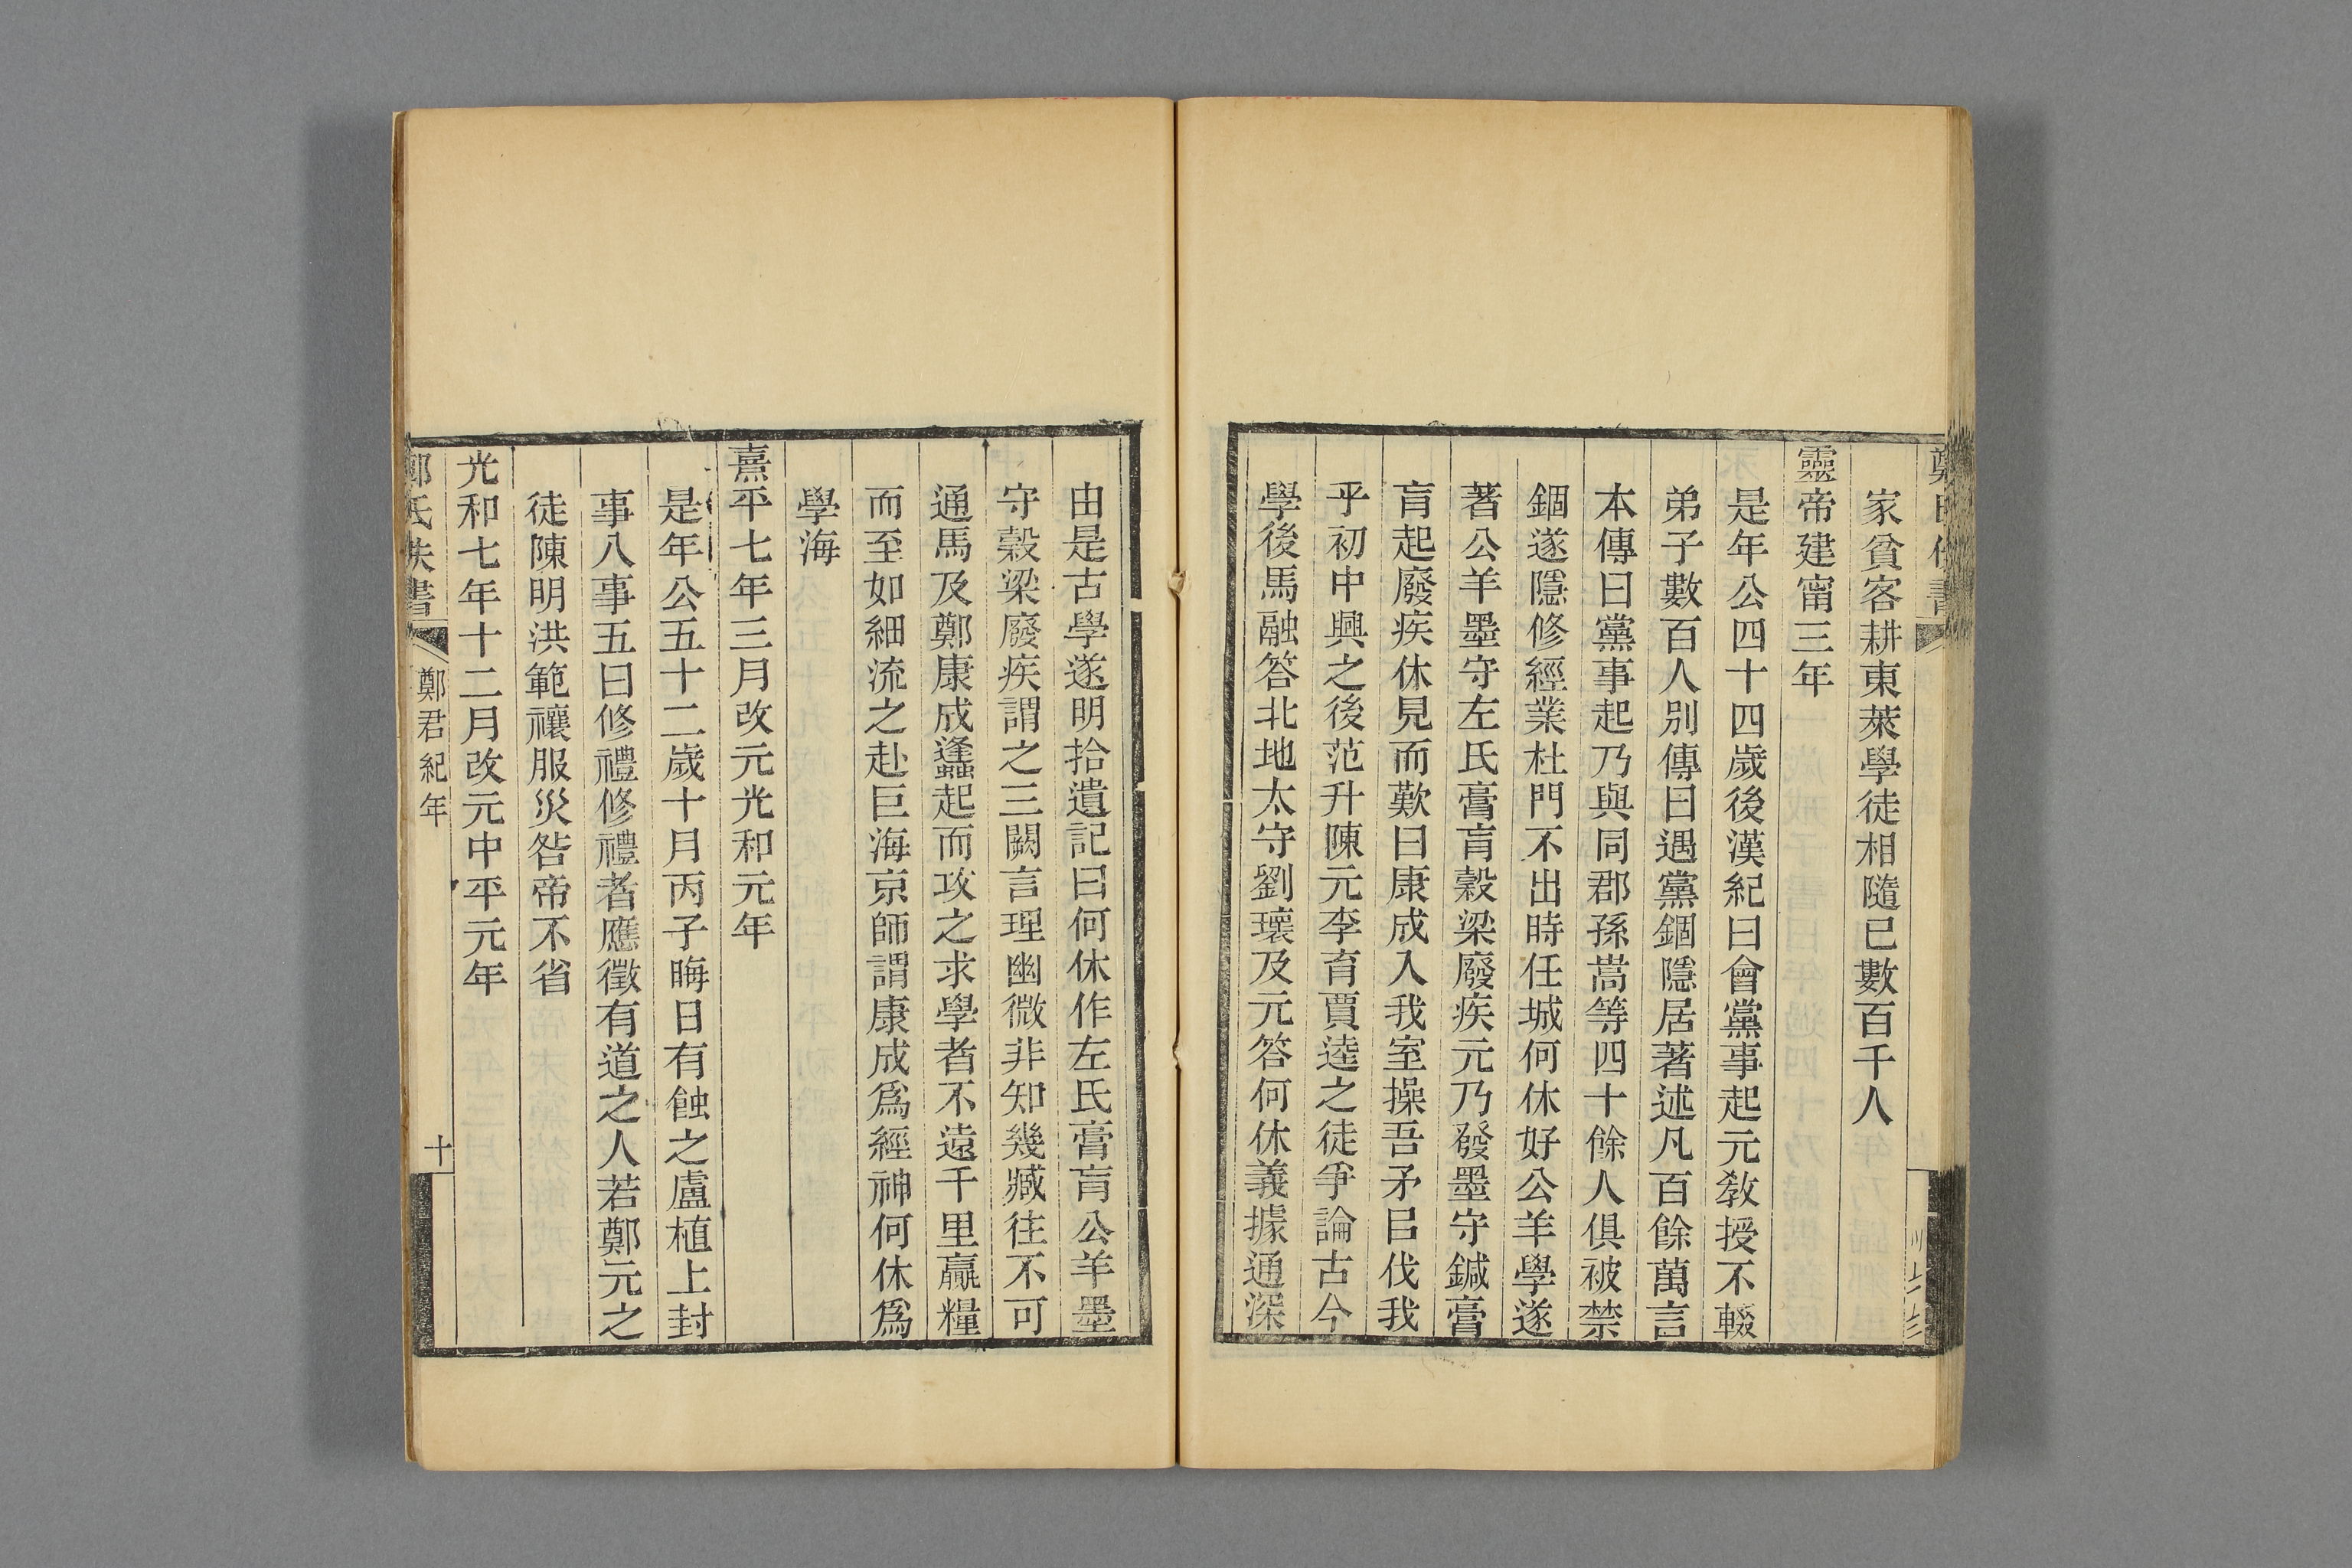 家貧客耕東萊學徒相隨已數百千人
靈帝建甯三年
是年公四十四歲後漢紀曰會黨事起元敎授不輟
弟子數百人別傳曰遇黨錮隱居著述凡百餘萬言
本傳曰黨事起乃與同郡孫嵩等四十餘人俱被禁
錮遂隱修經業杜門不出時任城何休好公羊學遂
著公羊墨守左氏膏肓穀梁廢疾元乃發墨守鍼膏
肓起廢疾休見而歎曰康成入我室操吾矛㠯伐我
乎初中興之後范升陳元李育賈逵之徒爭論古今
學後馬融答北地太守劉瓌及元答何休義據通深
由是古學遂明拾遺記曰何休作左氏膏肓公羊墨
守穀梁廢疾謂之三闕言理幽微非知幾臧往不可
通焉及鄭康成蠭起而攻之求學者不遠千里贏糧
而至如細流之赴巨海京師謂康成爲經神何休爲
學海
熹平七年三月改元光和元年
是年公五十二歲十月丙子晦日有蝕之盧植上封
事八事五曰修禮修禮者應徵有道之人若鄭元之
徒陳明洪範禳服災咎帝不省
光和七年十二月改元中平元年
鄭氏佚書
鄭君紀年
十